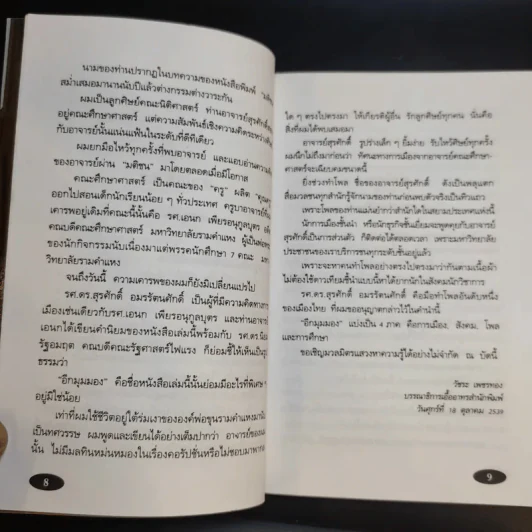 นามของท่านปรากฏในบทความของหนังสือพิมพ์ "มติชน
สม่ำเสมอมานานนับปีแล้วต่างกรรมต่างวาระกัน
ผมเป็นลูกศิษย์คณะนิติศาสตร์ ท่านอาจารย์สุรศักดิ์
อยู่คณะศึกษาศาสตร์ แต่ความสัมพันธ์เชิงความคิดระหว่าง
กับอาจารย์นั้นแน่นแฟ้นในระดับที่ดีทีเดียว
ผมยกมือไหว้ทุกครั้งที่พบอาจารย์ และแอบอ่าน
ของอาจารย์ผ่าน "มติชน" มาโดยตลอดเมื่อมีโอกาส
คณะศึกษาศาสตร์ เป็นคณะของ "ครู" ผลิต
ออกไปสอนเด็กนักเรียนน้อย ๆ ทั่วประเทศ ครูบาอาจารย์
เคารพอยู่เดิมที่คณะนี้นั้นคือ รศ.เอนก เพียรอนุกูลบุตร
คณบดีคณะศึกษาศาสตร์ มหาวิทยาลัยรามคำแหง
ของนักกิจกรรมนับเนื่องมาแต่พรรคนักศึกษา 7 คณะ
วิทยาลัยรามคำแหง
จนถึงวันนี้ ความเคารพของผมก็ยังมิเปลี่ยนแปรไป
รศ.ดร.สุรศักดิ์ อมรรัตนศักดิ์ เป็นผู้ที่มีความคิดทาง
เมืองเช่นเดียวกับรศ.เอนก เพียรอนุกูลบุตร และท่านอาจารย์
เอนกได้เขียนคำนิยมของหนังสือเล่มนี้พร้อมกับ รศ.ดร.
รัฐอมฤต คณบดีคณะรัฐศาสตร์ไฟแรง ก็ย่อมชี้ให้เห็นเป็น
ธรรมว่า
"อีกมุมมอง" คือชื่อหนังสือเล่มนี้นั้นย่อมมีอะไรที่พิเศษ
อยู่มิใช่น้อย
เท่าที่ผมใช้ชีวิตอยู่ใต้ร่มเงาขององค์พ่อขุนรามคำแหงมา
เป็นทศวรรษ ผมพูดและเขียนได้อย่างเต็มปากว่า อาจารย์ของ
นั้น ไม่มีมลทินหม่นหมองในเรื่องคอรัปชั่นหรือไม่ชอบมาพา
8
ใด ๆ ตรงไปตรงมา ให้เกียรติผู้อื่น รักลูกศิษย์ทุกคน นั่นคือ
สิ่งที่ผมได้พบเสมอมา
อาจารย์สุรศักดิ์ รูปร่างเล็ก ๆ ยิ้มง่าย รับไหว้ศิษย์ทุกครั้ง
ผมนึกไม่ถึงมาก่อนว่า ทัศนะทางการเมืองจากอาจารย์คณะศึกษา-
ศาสตร์จะเฉียบคมขนาดนี้
ยิ่งช่วงทำโพล ชื่อของอาจารย์สุรศักดิ์ ดังเป็นพลุแตก
สื่อมวลชนทุกสำนักรู้จักนามของท่านก่อนพบตัวจริงเป็นทิวแถว
เพราะโพลของท่านแม่นยำกว่าสำนักใดในสยามประเทศแห่งนี้
นักการเมืองชั้นนำ หรือนักธุรกิจชั้นเยี่ยมจะพูดคุยกับอาจารย์
สุรศักดิ์เป็นการส่วนตัว ก็ติดต่อได้ตลอดเวลา เพราะมหาวิทยาลัย
ประชาชนของเราบริการชนทุกระดับชั้นอยู่แล้ว
เพราะจะหาคนทำโพลอย่างตรงไปตรงมาว่ากันตามเนื้อผ้า
ไม่ต้องใช้ดาวเทียมชี้นำแบบนี้หาได้ยากนักในสังคมนักวิชาการ
รศ.ดร.สุรศักดิ์ อมรรัตนศักดิ์ คือมือทำโพลอันดับหนึ่ง
ของเมืองไทย ที่ผมขออนุญาตกล่าวไว้ในคำนำนี้
"อีกมุมมอง" แบ่งเป็น 4 ภาค คือการเมือง, สังคม, โพล
และการศึกษา
ขอเชิญมวลมิตรแสวงหาความรู้ได้อย่างไม่จำกัด ณ บัดนี้
วัชระ เพชรทอง
บรรณาธิการเอื้ออาทรสำนักพิมพ์
วันศุกร์ที่ 18 ตุลาคม 2539
9